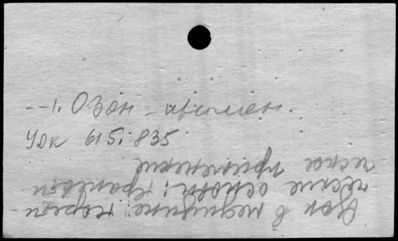 --1. Озон - примен.
УДК 615.835
Озон в медицине: теорети-
ческие основы; практи-
ческое применение